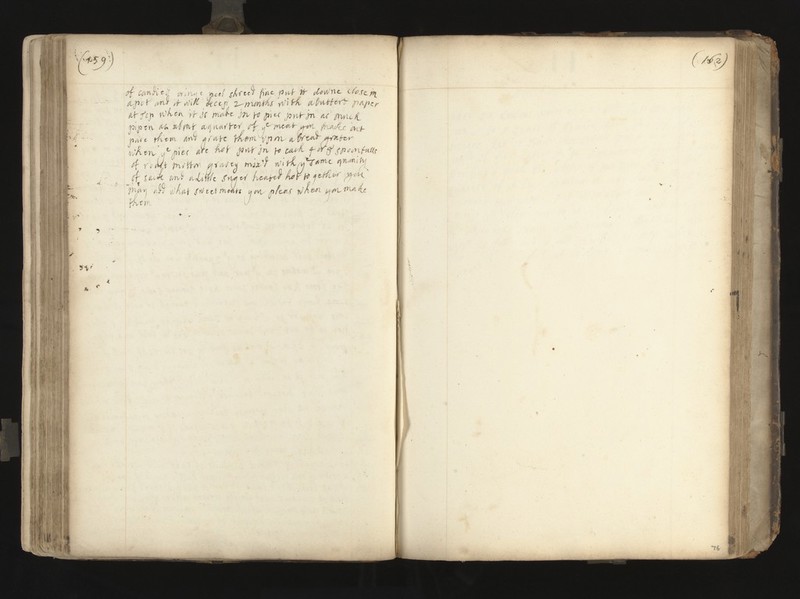 (159)
of candied oringe peel shreed fine put it downe close in
a pot and it will keep 2 months with a butterd paper
at top when it is made in to pies put in as much
pipen as about a quarter of ye meat you make
pare them and grate them upon a bread grater
when ye pies are hot put in to each 4 or 5 spoonfulls
of mutton gravey mix'd with ye same quantity
of sack and a little suger heated hot to gether you
may add what sweetmeats you pleas when you make
them
(162)
76